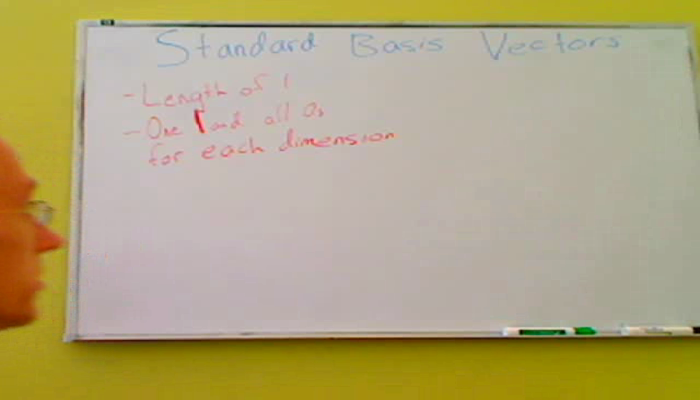 Standard Basis Vectors
- Length of 1
- One 1 and all 0s
for each dimension